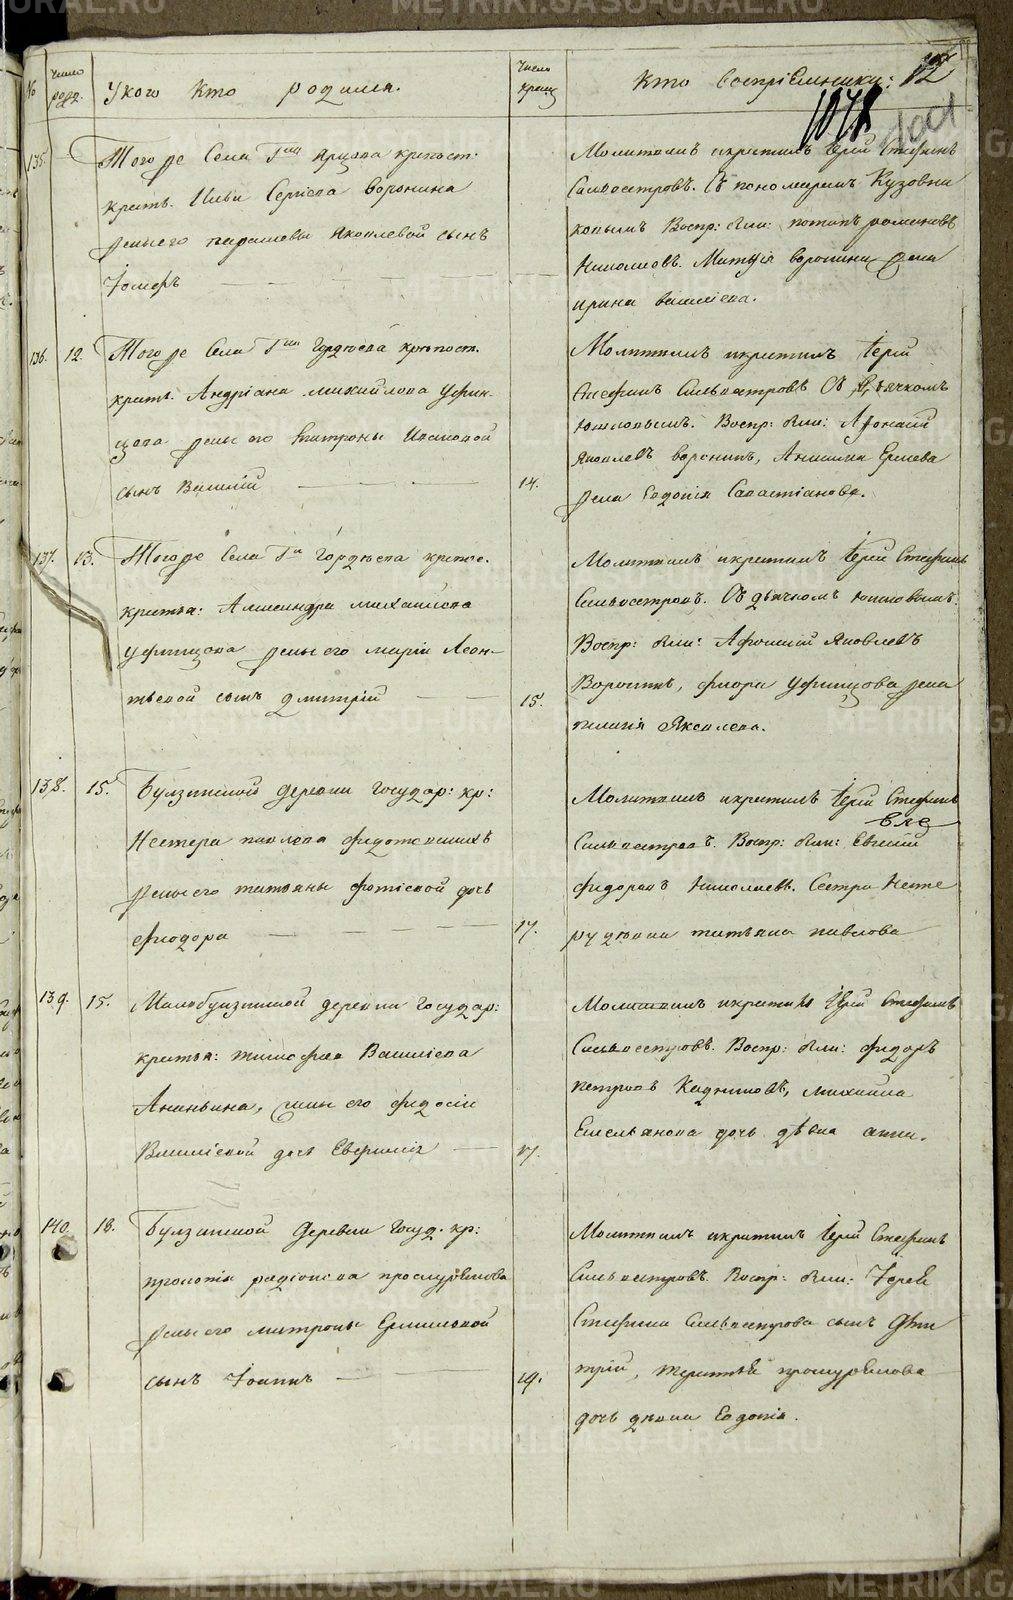 №
Число рожд.
У кого кто родился.
Число крещ.
Кто воспріемники:
135.
Того же Села Гна Ярцова крепост:
крестъ. Ильи Сергеева Воронина
жены его парасковьи Яковлевой сынъ
Іосифъ
Молитвилъ икрестилъ Іерей Стефанъ
Сильвестровъ. Съ пономаремъ Кузовни
ковымъ Воспр: были: потапъ романовъ
Николаевъ. Матвѣя воронина жена
ирина василіева.
136. 12.
Того же Села Гна Гордѣева крѣпост.
крест: Андріана михайлова Уфин-
цова жены его Матроны Ивановой
сынъ Василій
14.
Молитвилъ икрестилъ Іерей
Стефанъ Сильвестровъ Съ дьячкомъ
Воспр: были: Афонасій
Яковлевъ воронинъ, Анисима Ершева
жена Евдокія Савастіанова.
137. 13.
Того же Села Гна Гордѣева крепос.
крестья: Александра михайлова
уфинцова жены его маріи Леон-
тьевой сынъ дмитрій
15.
Молитвилъ икрестилъ Іерей Стефанъ
Сильвестровъ. Съ дьячкомъ
Воспр: были: Афонасій Яковлевъ
Воронинъ, флора уфинцова жена
пелагія Яковлева.
138. 15.
Булзинской деревни государ: кр:
Нестера павлова федотовскихъ
жены его татьяны фотіевой дочь
феодора
17.
Молитвилъ икрестилъ Іерей Стефанъ
Сильвестровъ. Воспр: были: Евгений
федоровъ Николаевъ. Сестра Несте
ру дѣвка татьяна павлова
139. 15.
Малобулзинской деревни государ:
крестья: тимофея Василіева
Ананьина, жены его федосіи
Василіевой дочь Евфимія
17.
Молитвилъ икрестилъ Іерей Стефанъ
Сильвестровъ. Воспр: были: федоръ
петровъ Кадниковъ, михаила
Емельянова дочь дѣвка анна.
140. 18.
Булзинской деревни госуд. кр:
радіонова проскурякова
жены его матроны Ермиловой
сынъ Іоаннъ
19.
Молитвилъ икрестилъ Іерей Стефанъ
Сильвестровъ. Воспр: были: Іерея
Стефана Сильвестрова сынъ Дми
трій, терентья проскурякова
дочь дѣвка Евдокія.
METRIKI.GASU-URAL.RU